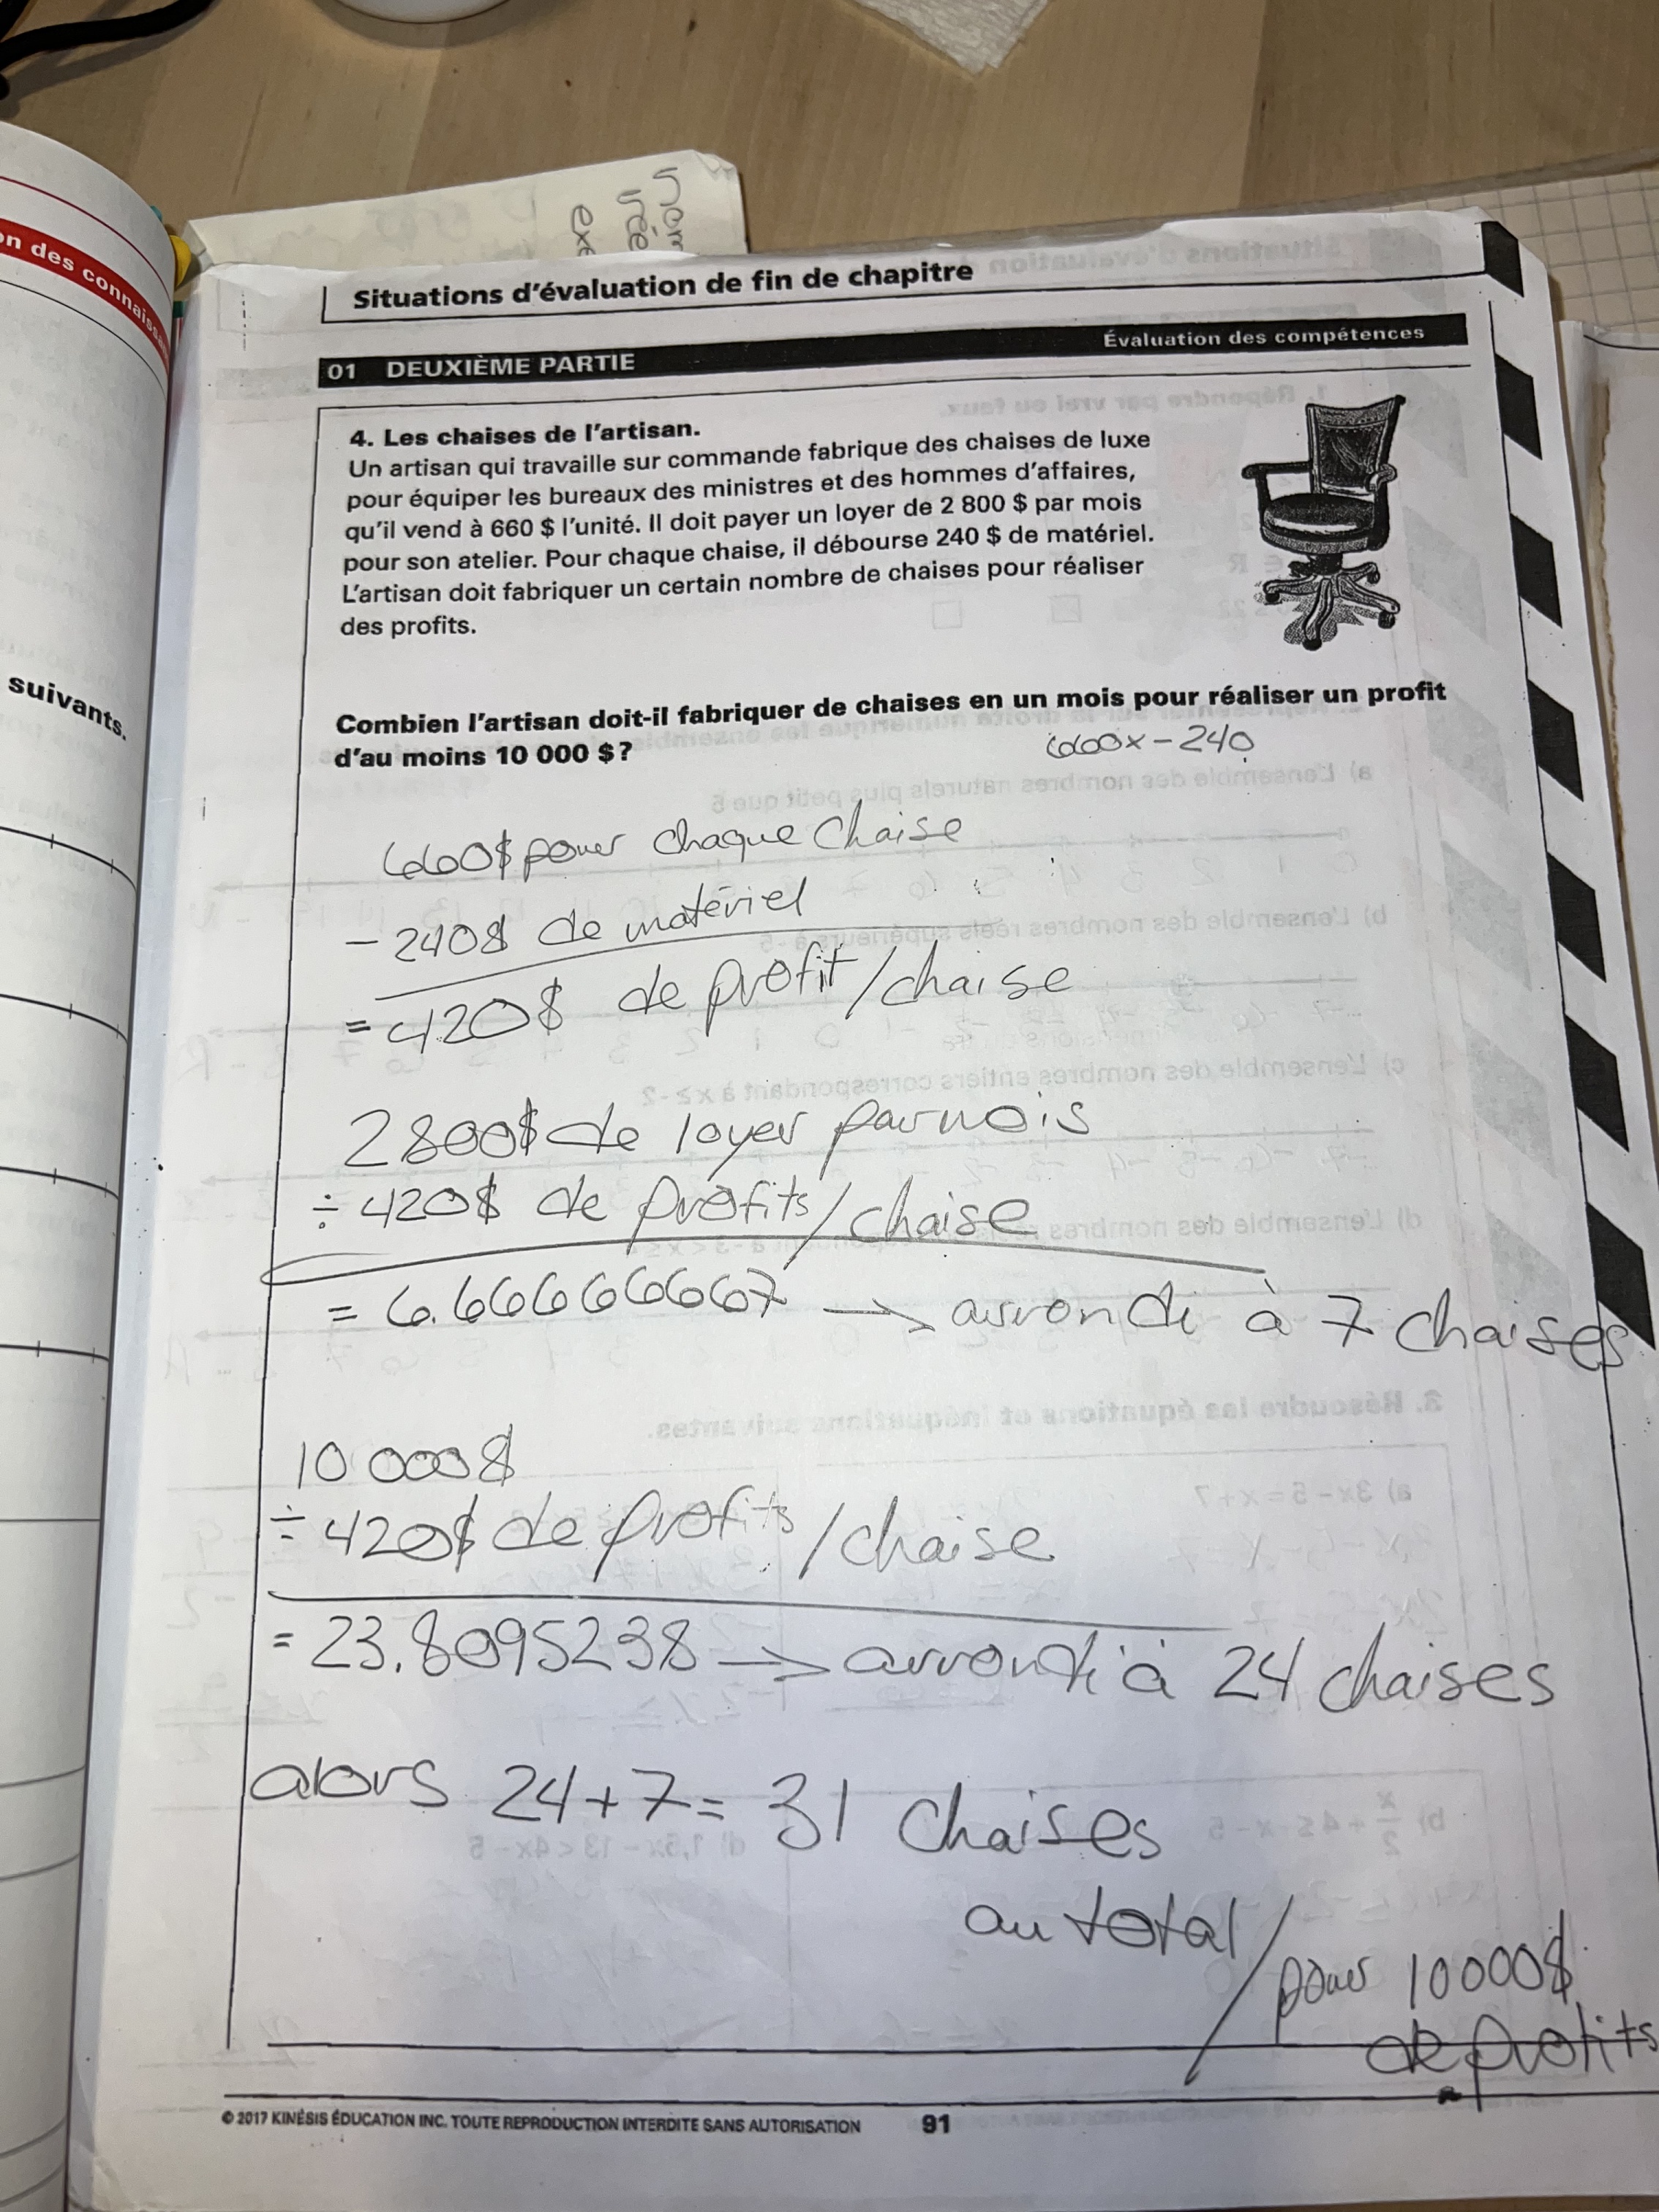 on des connaiss
suivants.
Situations d'évaluation de fin de chapitre
01 DEUXIÈME PARTIE
Évaluation des compétences
4. Les chaises de l'artisan.
Un artisan qui travaille sur commande fabrique des chaises de luxe
pour équiper les bureaux des ministres et des hommes d'affaires,
qu'il vend à 660 $ l'unité. Il doit payer un loyer de 2 800 $ par mois
pour son atelier. Pour chaque chaise, il débourse 240 $ de matériel.
L'artisan doit fabriquer un certain nombre de chaises pour réaliser
des profits.
Combien l'artisan doit-il fabriquer de chaises en un mois pour réaliser un profit
d'au moins 10 000 $ ?
660x - 240
660$ pour chaque chaise
- 240$ de matériel
= 420$ de profit/chaise
2800$ de loyer par mois
÷ 420$ de profits/chaise
= 6.666666667 → arrondi à 7 chaises
10 000$
÷ 420$ de profits/chaise
= 23.8095238 → arrondi à 24 chaises
alors 24+7= 31 chaises
au total/pour 10000$
de profits
© 2017 KINÉSIS ÉDUCATION INC. TOUTE REPRODUCTION INTERDITE SANS AUTORISATION 91